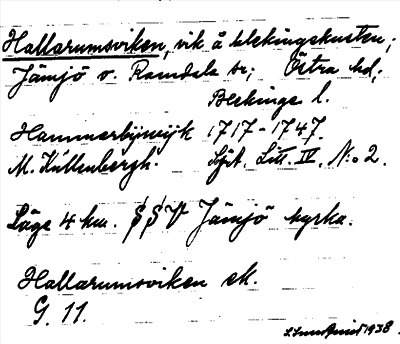 Hallarumsviken, vik å blekingekusten;
Jämjö o. Ramdala sr; Östra hd;
Blekinge l.
Hammarbÿwijk 1717-1747.
M. Küllenbergh. Sjöt. Litt. IV, N:o 2.
Läge 4 km. SSV Jämjö kyrka.
Hallarumsviken ek.
G. 11.
1938.